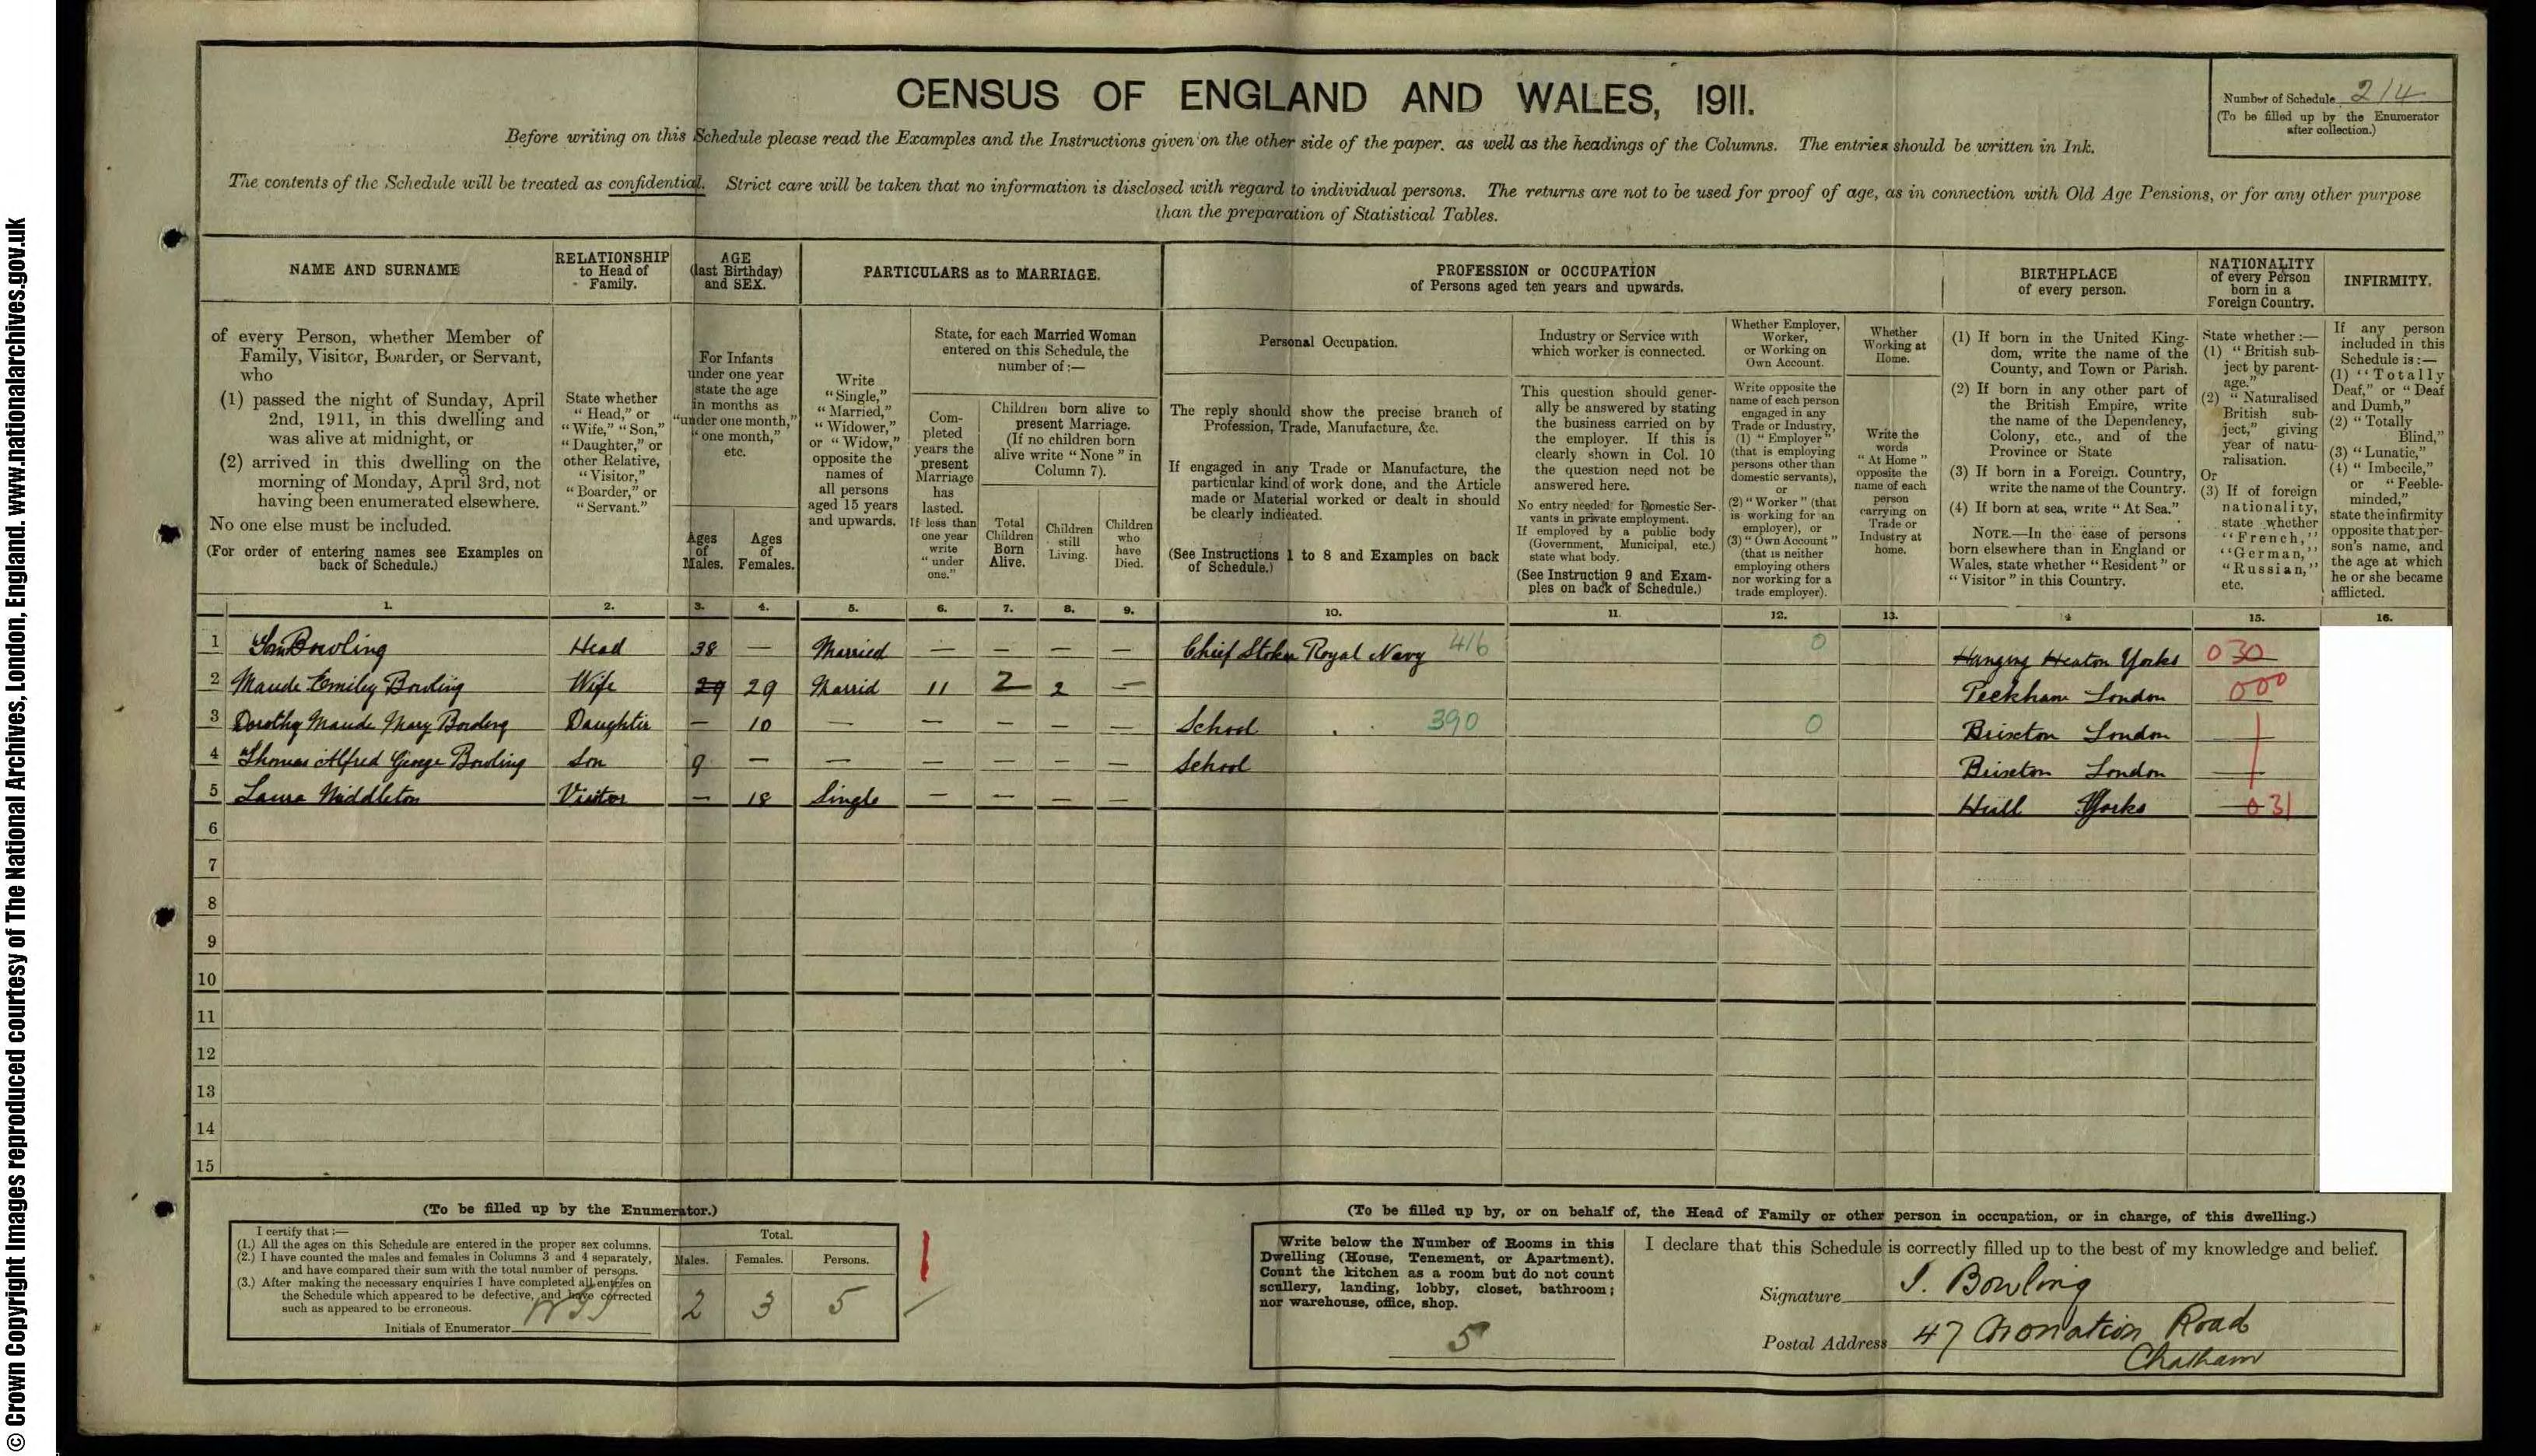 © Crown Copyright Images reproduced courtesy of The National Archives, London, England. www.nationalarchives.gov.uk
CENSUS OF ENGLAND AND WALES, 1911.
Number of Schedule 214
(To be filled up by the Enumerator
after collection.)
Before writing on this Schedule please read the Examples and the Instructions given on the other side of the paper, as well as the headings of the Columns. The entries should be written in Ink.
The contents of the Schedule will be treated as confidential. Strict care will be taken that no information is disclosed with regard to individual persons. The returns are not to be used for proof of age, as in connection with Old Age Pensions, or for any other purpose
than the preparation of Statistical Tables.
NAME AND SURNAME
of every Person, whether Member of
Family, Visitor, Boarder, or Servant,
who
(1) passed the night of Sunday, April
2nd, 1911, in this dwelling and
was alive at midnight, or
(2) arrived in this dwelling on the
morning of Monday, April 3rd, not
having been enumerated elsewhere.
No one else must be included.
(For order of entering names see Examples on
back of Schedule.)
RELATIONSHIP
to Head of
Family.
State whether
"Head," or
"Wife," "Son,"
"Daughter," or
other Relative,
"Visitor,"
"Boarder," or
"Servant."
AGE
(last Birthday)
and SEX.
For Infants
under one year
state the age
in months as
"under one month,"
"one month,"
etc.
Ages
of
Males.
Ages
of
Females.
PARTICULARS as to MARRIAGE.
Write
"Single,"
"Married,"
"Widower,"
or "Widow,"
opposite the
names of
all persons
aged 15 years
and upwards.
State, for each Married Woman
entered on this Schedule, the
number of :—
Com-
pleted
years the
present
Marriage
has
lasted.
If less than
one year
write
"under
one."
Children born alive to
present Marriage.
(If no children born
alive write "None" in
Column 7).
Total
Children
Born
Alive.
Children
still
Living.
Children
who
have
Died.
PROFESSION or OCCUPATION
of Persons aged ten years and upwards.
Personal Occupation.
The reply should show the precise branch of
Profession, Trade, Manufacture, &c.
If engaged in any Trade or Manufacture, the
particular kind of work done, and the Article
made or Material worked or dealt in should
be clearly indicated.
(See Instructions 1 to 8 and Examples on back
of Schedule.)
Industry or Service with
which worker is connected.
This question should gener-
ally be answered by stating
the business carried on by
the employer. If this is
clearly shown in Col. 10
the question need not be
answered here.
No entry needed for Domestic Ser-
vants in private employment.
If employed by a public body
(Government, Municipal, etc.)
state what body.
(See Instruction 9 and Exam-
ples on back of Schedule.)
Whether Employer,
Worker,
or Working on
Own Account.
Write opposite the
name of each person
engaged in any
Trade or Industry,
(1) "Employer"
(that is employing
persons other than
domestic servants),
or
(2) "Worker" (that
is working for an
employer), or
(3) "Own Account"
(that is neither
employing others
nor working for a
trade employer).
Whether
Working at
Home.
Write the
words
"At Home"
opposite the
name of each
person
carrying on
Trade or
Industry at
home.
BIRTHPLACE
of every person.
(1) If born in the United King-
dom, write the name of the
County, and Town or Parish.
(2) If born in any other part of
the British Empire, write
the name of the Dependency,
Colony, etc., and of the
Province or State
(3) If born in a Foreign Country,
write the name of the Country.
(4) If born at sea, write "At Sea."
NOTE.—In the case of persons
born elsewhere than in England or
Wales, state whether "Resident" or
"Visitor" in this Country.
NATIONALITY
of every Person
born in a
Foreign Country.
State whether :—
(1) "British sub-
ject by parent-
age."
(2) "Naturalised
British sub-
ject," giving
year of natu-
ralisation.
Or
(3) If of foreign
nationality,
state whether
"French,"
"German,"
"Russian,"
etc.
INFIRMITY.
If any person
included in this
Schedule is :—
(1) "Totally
Deaf," or "Deaf
and Dumb,"
(2) "Totally
Blind,"
(3) "Lunatic,"
(4) "Imbecile,"
or "Feeble-
minded,"
state the infirmity
opposite that per-
son's name, and
the age at which
he or she became
afflicted.
1. 2. 3. 4. 5. 6. 7. 8. 9. 10. 11. 12. 13. 14 15. 16.
1 Bowling Head 38 — Married — — — — Chief Stoker Royal Navy 416 0 Hanging Heaton Yorks 030
2 Maude Emiley Bowling Wife 29 29 Marrid 11 2 2 — Peckham London 000
3 Dorothy Maude Mary Bowling Daughter — 10 — — — — — School 390 0 Brixton London —
4 Thomas Alfred George Bowling Son 9 — — — — — — School Brixton London —
5 Laura Middleton Visitor — 18 Single — — — — Hull Yorks 031
6
7
8
9
10
11
12
13
14
15
(To be filled up by the Enumerator.)
I certify that :—
(1.) All the ages on this Schedule are entered in the proper sex columns.
(2.) I have counted the males and females in Columns 3 and 4 separately,
and have compared their sum with the total number of persons.
(3.) After making the necessary enquiries I have completed all entries on
the Schedule which appeared to be defective, and have corrected
such as appeared to be erroneous.
Initials of Enumerator
Total.
Males. Females. Persons.
2 3 5
(To be filled up by, or on behalf of, the Head of Family or other person in occupation, or in charge, of this dwelling.)
Write below the Number of Rooms in this
Dwelling (House, Tenement, or Apartment).
Count the kitchen as a room but do not count
scullery, landing, lobby, closet, bathroom;
nor warehouse, office, shop.
5
I declare that this Schedule is correctly filled up to the best of my knowledge and belief.
Signature Bowling
Postal Address 47 Coronation Road
Chatham